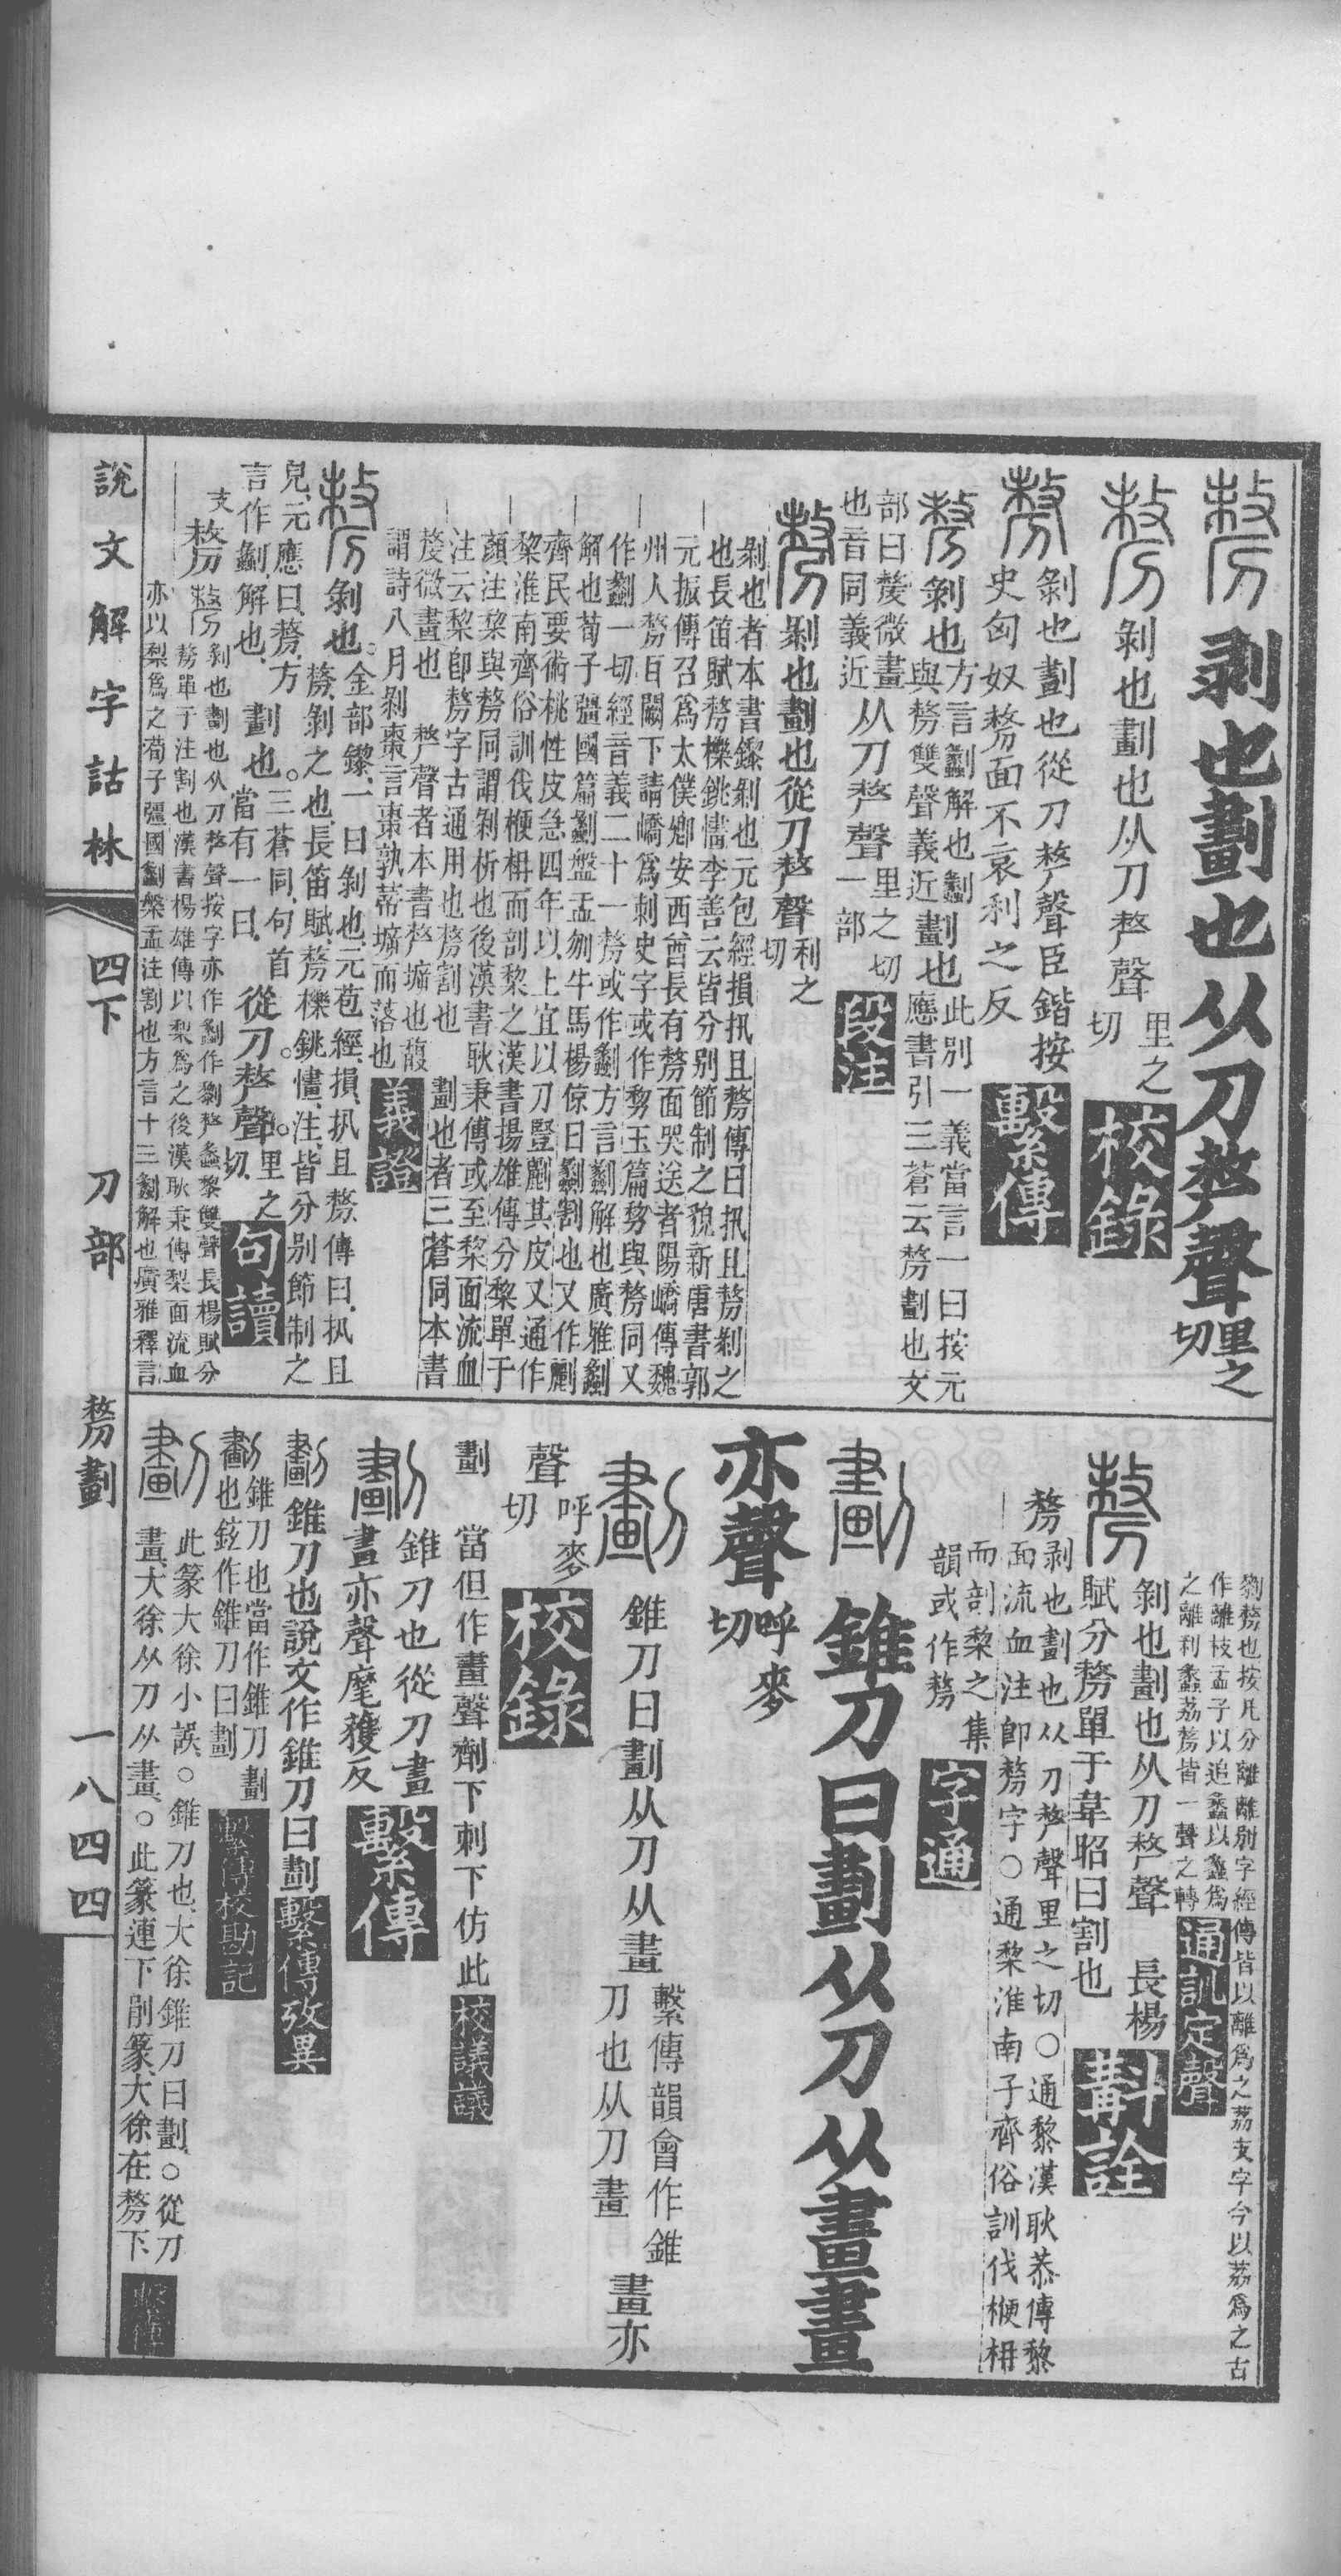 剥也劃也从刀𠩺聲里之切
剥也劃也从刀𠩺聲里之切 校錄
剝也劃也從刀𠩺聲臣鍇按
史匈奴剺面不哀利之反 繫傳
剝也方言劙解也劙與剺雙聲義近劃也此別一義當言一曰按元應書引三蒼云剺劃也文
部曰嫠微畫也音同義近从刀𠩺聲里之切一部 段注
剝也劃也從刀𠩺聲利之切
剝也者本書鑗剝也元包經損扟且剺傳曰扟且剺剝之
也長笛賦剺櫟銚㦎李善云皆分別節制之貌新唐書郭
元振傳召爲太僕卿安西酋長有剺面哭送者陽嶠傳魏
州人剺耳闕下請嶠爲刺史字或作剓玉篇剓與剺同又
作劙一切經音義二十一剺或作劙方言劙解也廣雅劙
解也荀子彊國篇劙盤盂刎牛馬楊倞曰劙割也又作㔣
齊民要術桃性皮急四年以上宜以刀豎㔣其皮又通作
黎淮南齊俗訓伐楩枏而剖黎之漢書揚雄傳分黎單于
顏注黎與剺同謂剝析也後漢書耿秉傳或至黎面流血
注云黎卽剺字古通用也剺割也 劃也者三蒼同本書
嫠微畫也 𠩺聲者本書𠩺㙱也馥
謂詩八月剝棗言棗孰蒂㙱而落也 義證
剝也。金部鑗、一曰剝也、元苞經、損、扟且剺、傳曰、扟且
剺、剝之也、長笛賦、剺櫟銚㦎、注、皆分別節制之
皃、元應曰、剺、方言作劙、解也、劃也。三蒼同、句首當有一曰、從刀𠩺聲。里之切、 句讀
支 剺 剝也劃也从刀𠩺聲按字亦作劙作劉𠩺蠡黎雙聲長楊賦分
剺單于注割也漢書楊雄傳以梨爲之後漢耿秉傳梨面流血
亦以梨爲之荀子彊國劙槃盂注割也方言十三劙解也廣雅釋言
說文解字詁林 四下 刀部 剺劃 一八四四
劉剺也按凡分離離別字經傳皆以離爲之荔支字今以荔爲之古
作離枝孟子以追蠡以蠡爲
之離利蠡荔剺皆一聲之轉 通訓定聲
剝也劃也从刀𠩺聲 長楊
賦分剺單于韋昭曰割也 斠詮
剺 剥也劃也从刀𠩺聲里之切○通黎漢耿恭傳黎
面流血注卽剺字○通棃淮南子齊俗訓伐楩枏
而剖棃之集
韻或作剺 字通
錐刀曰劃从刀从畫畫
亦聲呼麥切
錐刀曰劃从刀从畫 繫傳韻會作錐刀也从刀畫 畫亦
聲呼麥切 校錄
劃 當但作畫聲劑下刺下仿此 校議議
錐刀也從刀畫
畫亦聲麾獲反 繫傳
錐刀也說文作錐刀曰劃 繫傳攷異
錐刀也當作錐刀劃
也鉉作錐刀曰劃 繫傳校勘記
此篆大徐小誤、○錐刀也、大徐錐刀曰劃、○從刀
畫、大徐从刀从畫、○此篆連下剈篆、大徐在剺下、